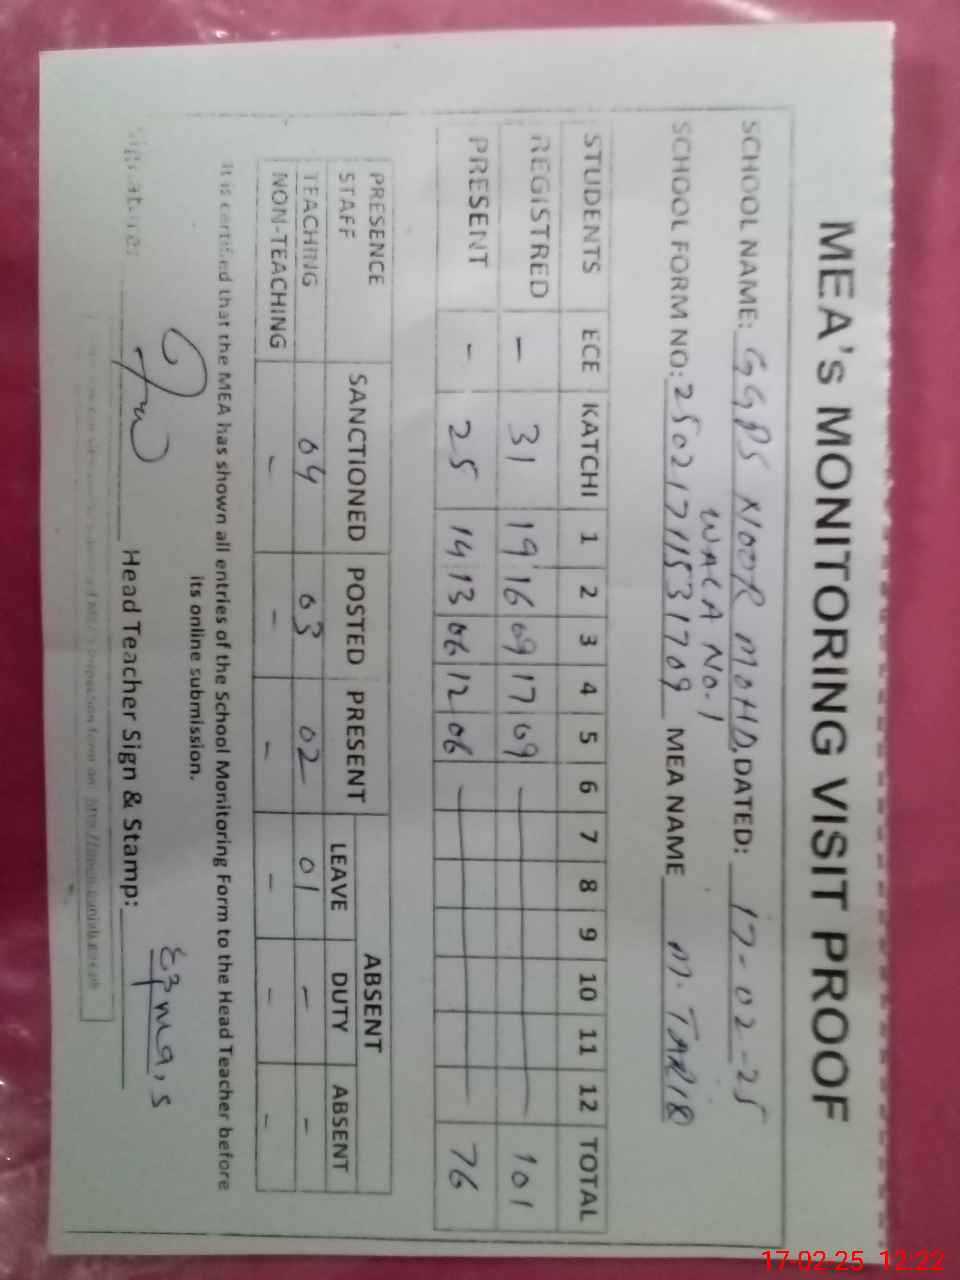 MEA's MONITORING VISIT PROOF
SCHOOL NAME: GGPS NOOR MOHD, DATED: 17-02-25
WALA NO.1
SCHOOL FORM NO: 25021711531709 MEA NAME M. TARIQ
STUDENTS ECE KATCHI 1 2 3 4 5 6 7 8 9 10 11 12 TOTAL
REGISTRED - 31 19 16 09 17 09 101
PRESENT - 25 14 13 06 12 06 76
PRESENCE STAFF SANCTIONED POSTED PRESENT ABSENT
LEAVE DUTY ABSENT
TEACHING 04 03 02 01 - -
NON-TEACHING - - - - - -
It is certified that the MEA has shown all entries of the School Monitoring Form to the Head Teacher before
its online submission.
Signature: Head Teacher Sign & Stamp:
17-02-25 12:22